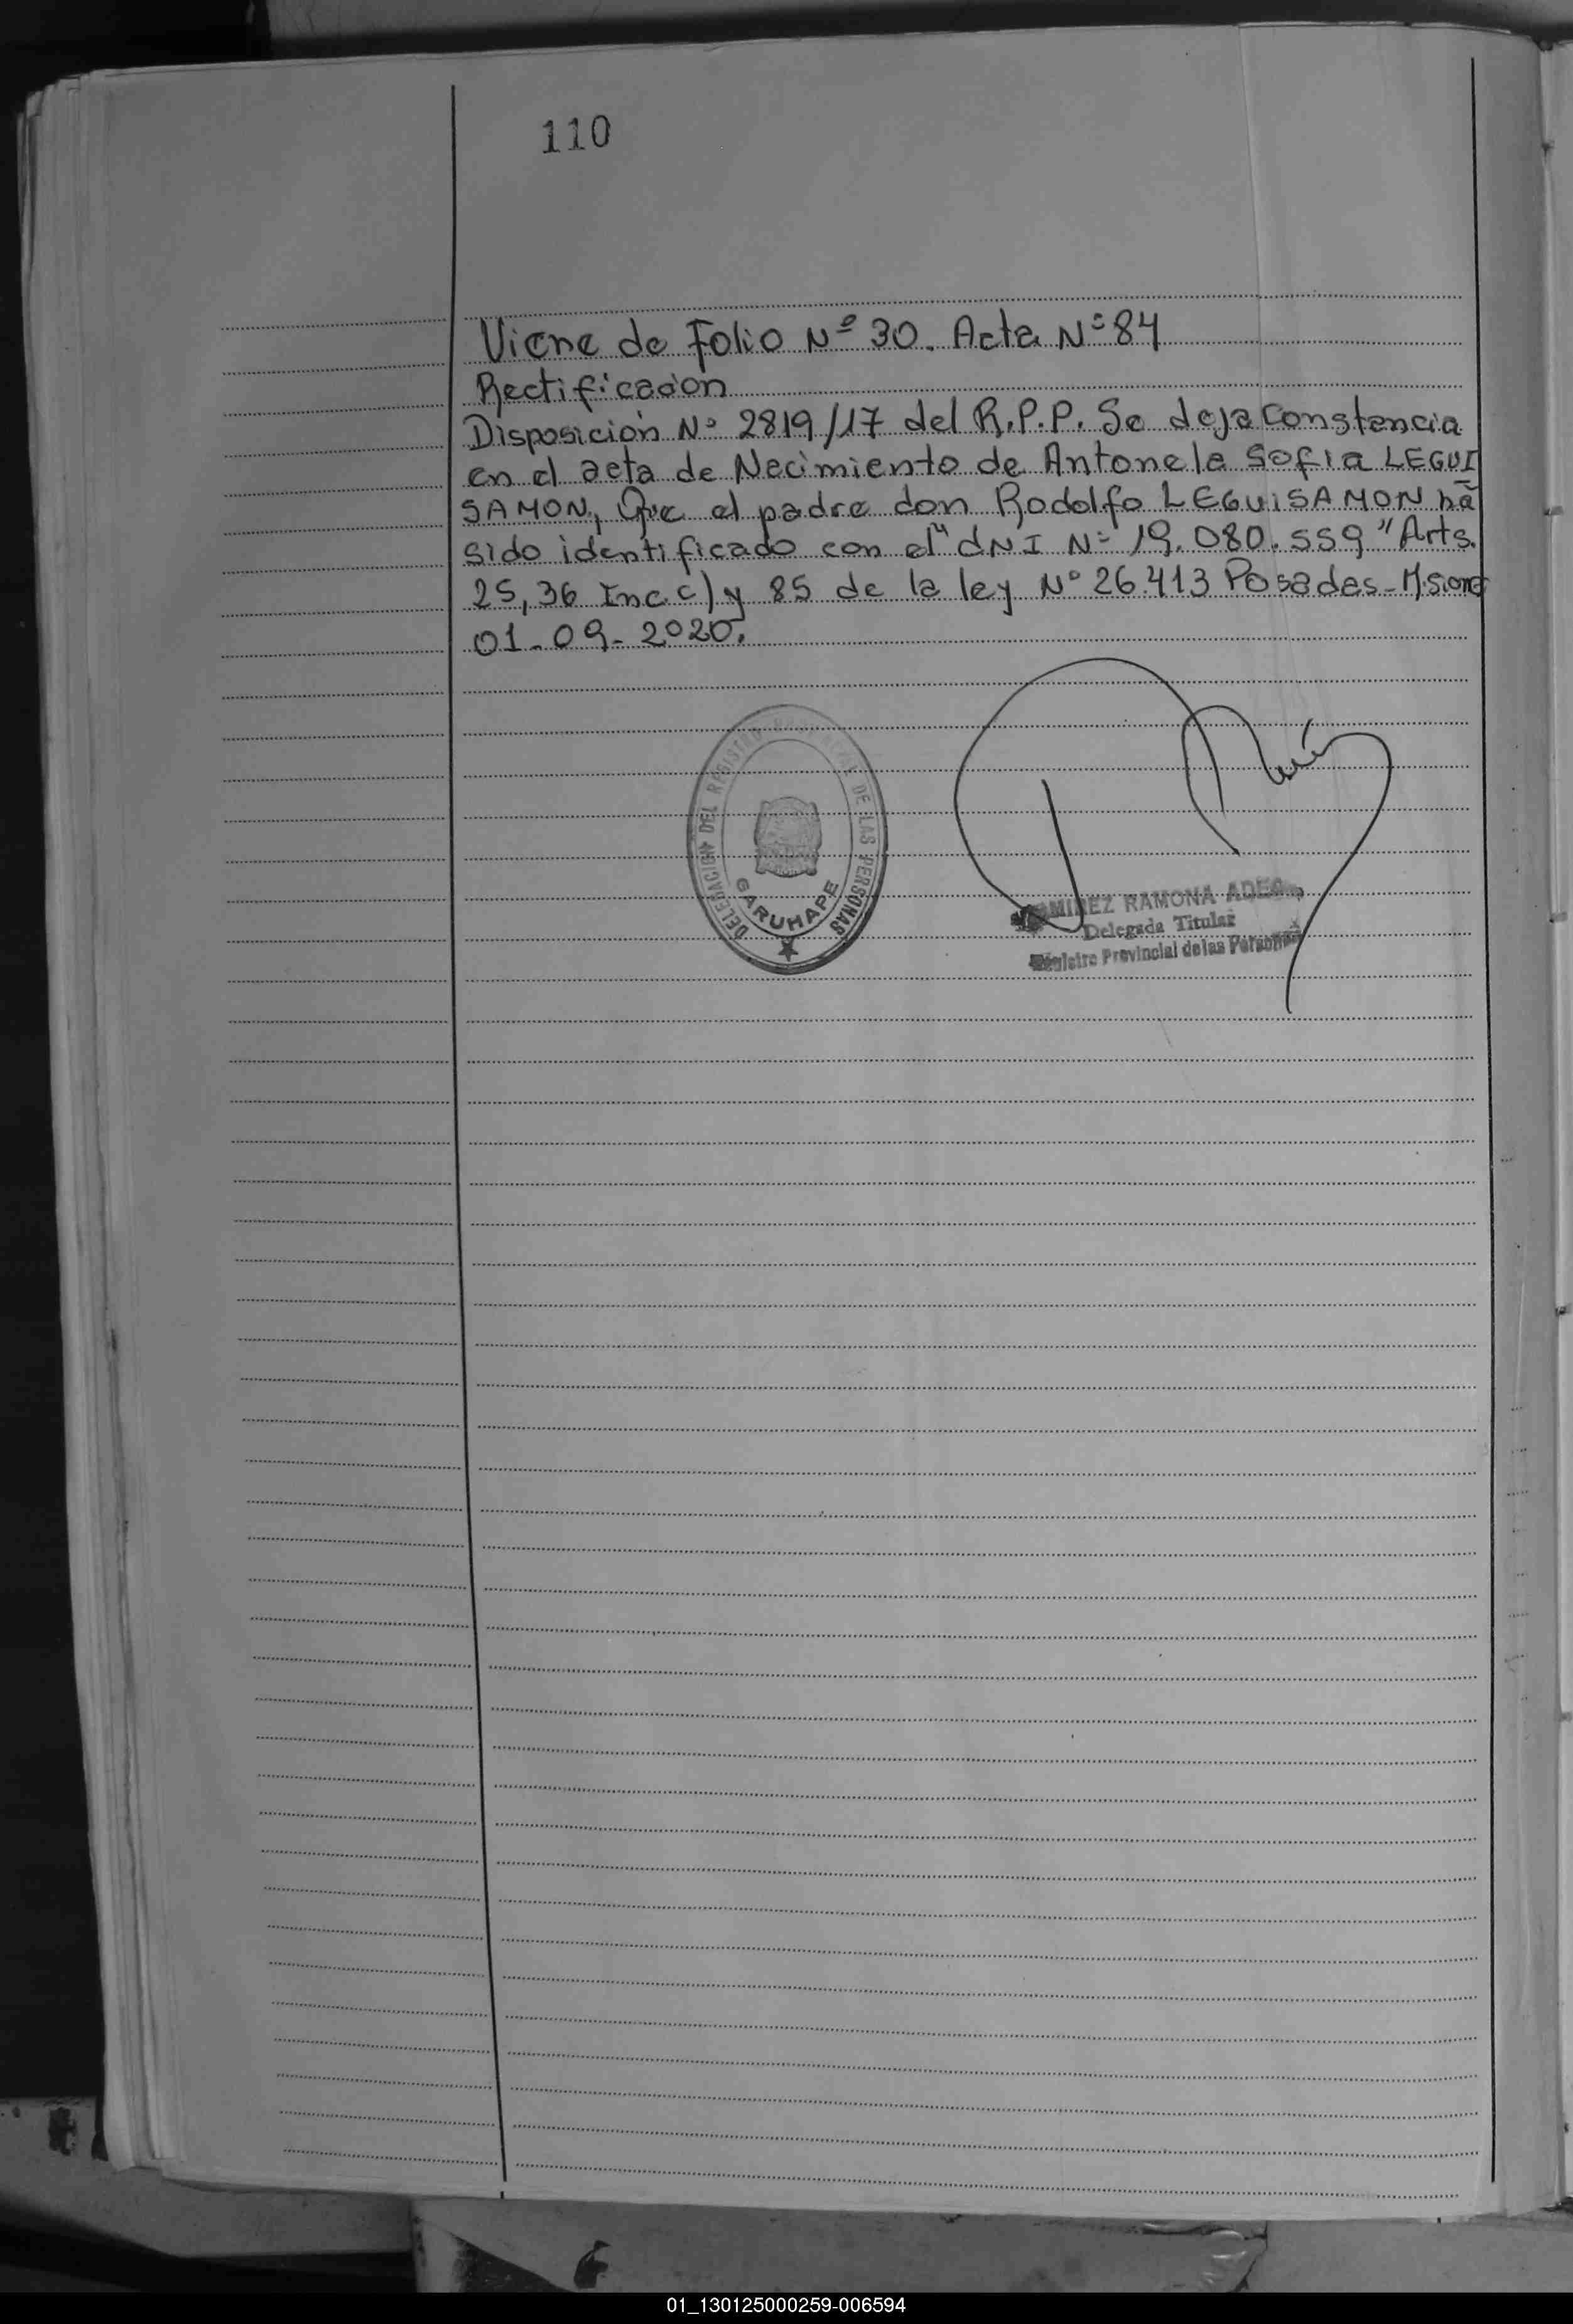 110
Viene de Folio Nº 30. Acta Nº 84
Rectificacion
Disposición Nº 2819/17 del R.P.P. Se deja Constancia
en el acta de Nacimiento de Antonela Sofia LEGUI
SAMON, Que el padre don Rodolfo LEGUISAMON ha
sido identificado con el "dNI Nº 19.080.559" Arts.
25, 36 Inc. c) y 85 de la ley Nº 26.413 Posadas - Misiones
01-09-2020.
DELEGACION DEL REGISTRO PROVINCIAL DE LAS PERSONAS
GARUHAPE
RAMONA
Delegada Titular
Registro Provincial de las Personas
01_130125000259-006594